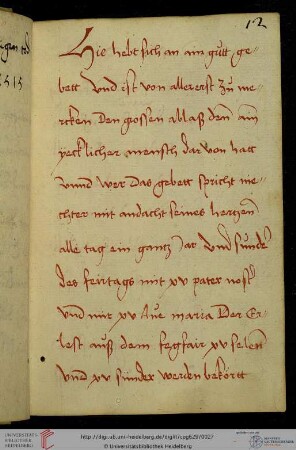 12
Hie hebt sich an ain gutt ge-
bett Vnd ist von aller erst zu me-
rcken Den grossen ablaß denn ain
yecklicher mensch dar von hatt
vnnd wer Das gebett spricht me-
chter mit andacht seines hertzenn
alle tag ein gantz Jar Vnd sunder
des feirtags mit xv pater nost
Vnd mit xv Aue maria Der Er-
lest auß dem fegfair xv selenn
Vnd xv sünder werden bekörtt
1515
UNIVERSITÄTS-
BIBLIOTHEK
HEIDELBERG
http://digi.ub.uni-heidelberg.de/diglit/cpg629/0027
© Universitätsbibliothek Heidelberg